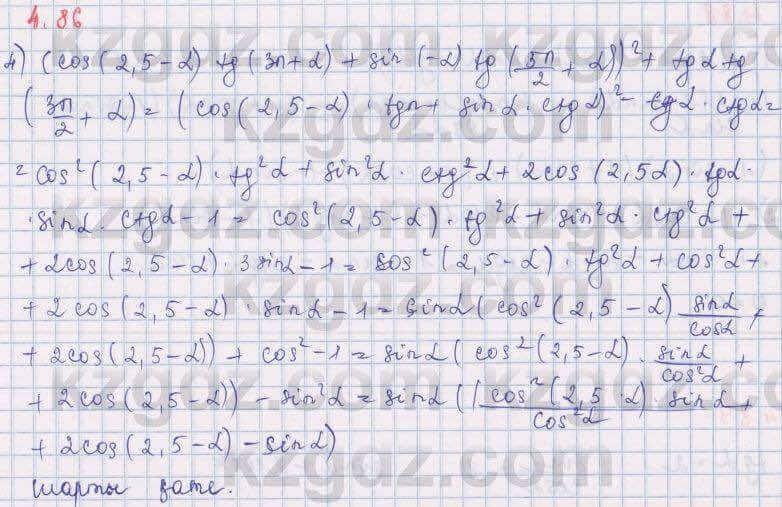 4.86
4) (cos(2,5-α) tg(3π+α) + sin(-α) tg(5π/2 + α))² + tgα tg
(3π/2 + α) = (cos(2,5-α) · tgπ+ sinα·ctgα)² - tgα·ctgα =
= cos²(2,5-α)·tg²α + sin²α·ctg²α + 2cos(2,5α)·tgα·
·sinα·ctgα-1 = cos²(2,5-α)·tg²α + sin²α·ctg²α +
+ 2cos(2,5-α)·3sinα-1 = cos²(2,5-α)·tg²α + cos²α+
+ 2cos(2,5-α)·sinα-1 = sinα(cos²(2,5-α) sinα/cosα +
+ 2cos(2,5-α)) + cos²-1 = sinα(cos²(2,5-α)·sinα/cos²α +
+ 2cos(2,5-α)) - sin²α = sinα((cos²(2,5·α) sinα/cos²α +
+ 2cos(2,5-α) - sinα)
шарты қате.
kzgdz.com
kzgdz.com
kzgdz.com
kzgdz.com